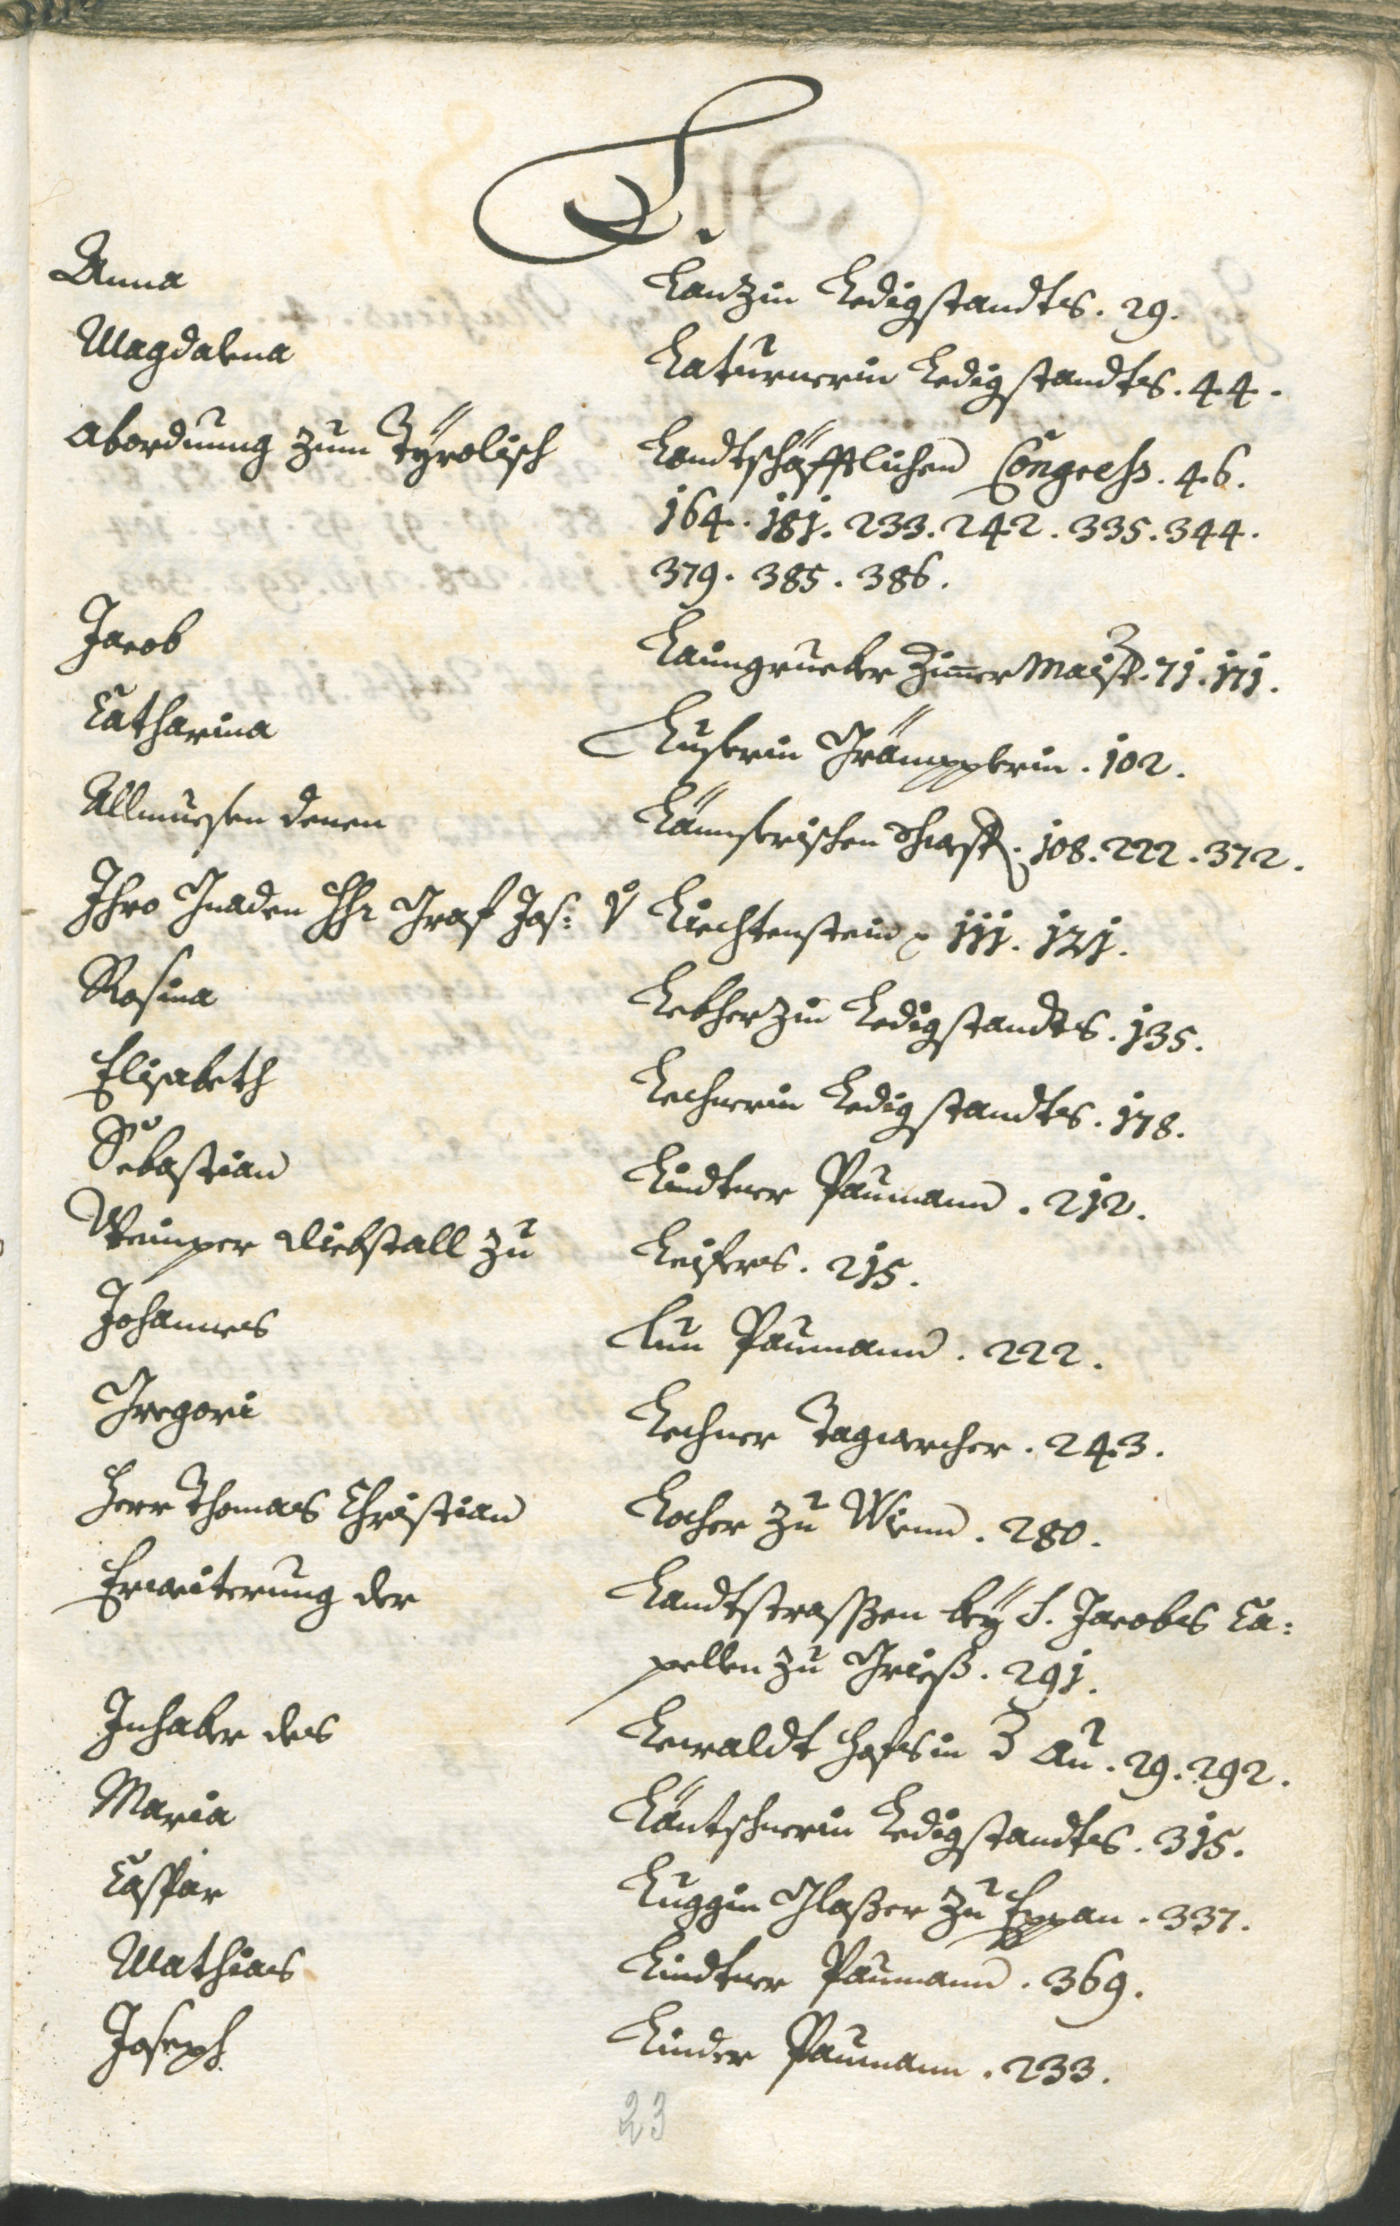 L.
Anna Lanzin Ledigstandts. 29.
Magdalena Laturnerin Ledigstandts. 44.
Abordnung zum Tÿrolisch Landtschäfftlichen Congress. 46.
164. 181. 233. 242. 335. 344.
379. 385. 386.
Jacob Laimgrueber Zimer Maist. 71. 171.
Catharina Luserin Trämpplerin. 102.
Allmuesen denen 108. 222. 372.
Ihro Gnaden Graf Jos: v Liechtenstein 111. 121.
Rosina Lebherzin Ledigstandts. 135.
Elisabeth Lechnerin Ledigstandts. 178.
Sebastian Lindtner Paumann. 212.
Weimper Diebstall zu Leifers. 215.
Johannes Lun Paumann. 222.
Gregori Lechner Tagwercher. 243.
Herr Thomas Christian Locher zu Wienn. 280.
Erweiterung der Landtstrassen beÿ S. Jacobs Ca:
pellen zu Grieß. 291.
Inhaber des Lewaldt Hofs in d Au. 29. 292.
Maria Läntschnerin Ledigstandts. 315.
Caspar Luggin Glaßer zu Eppan. 337.
Mathias Lindtner Paumann. 369.
Joseph Linder Paumann. 233.
23